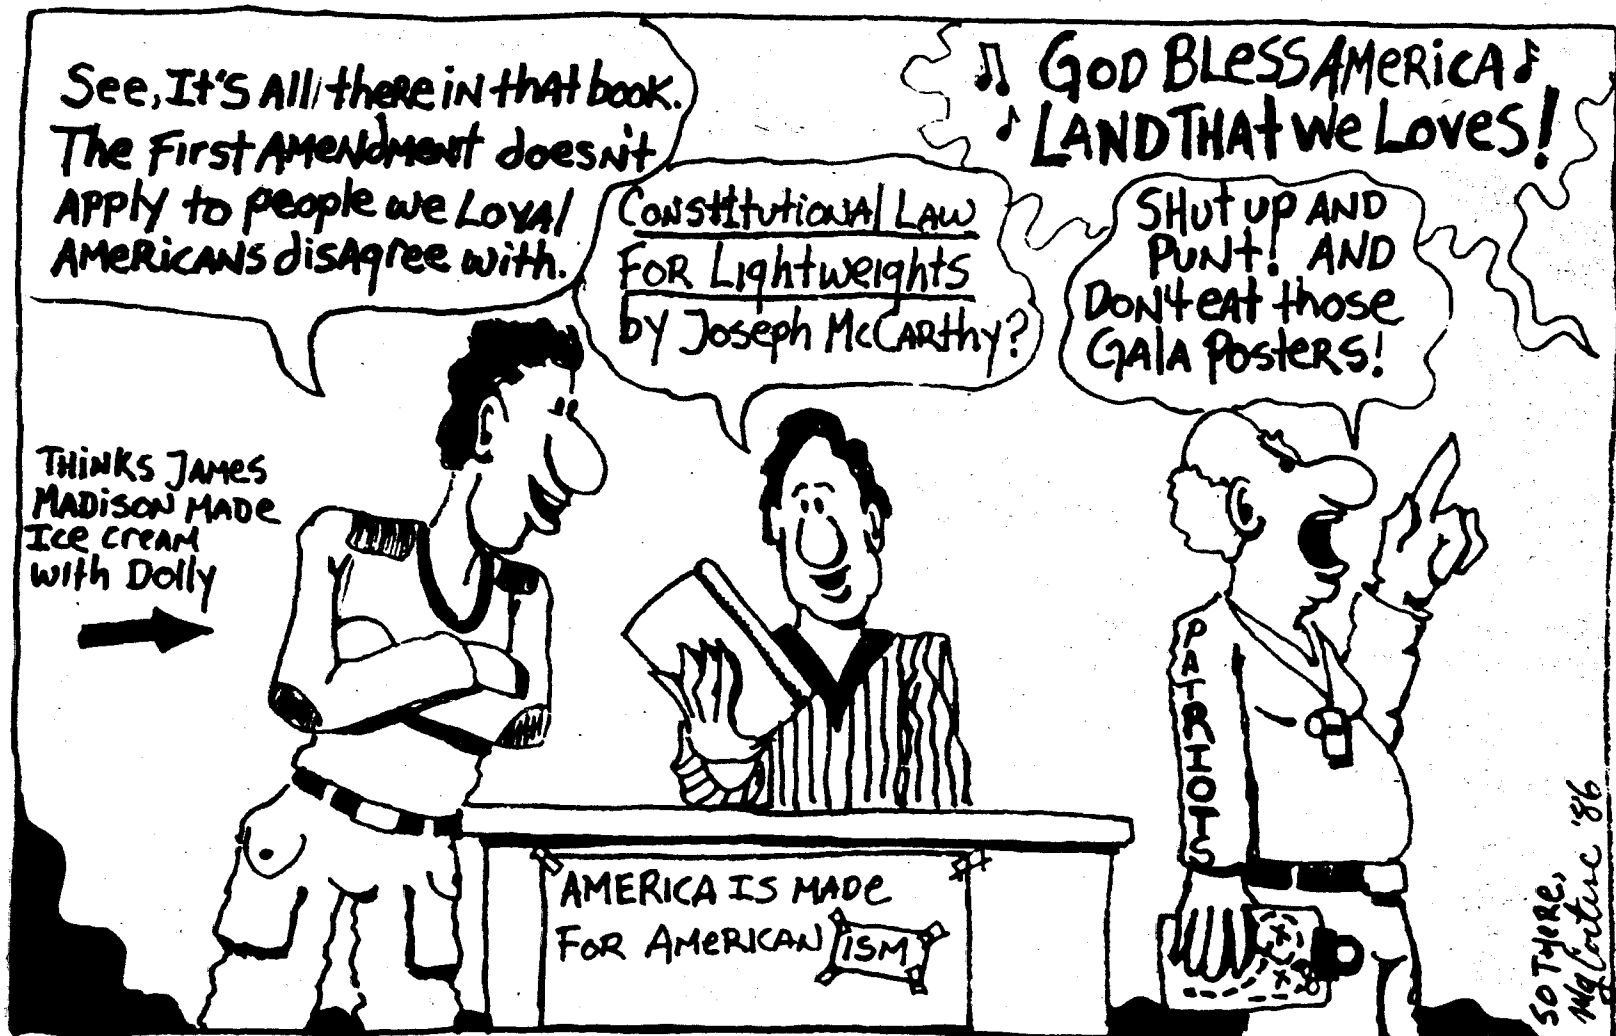 See, It's All there in that book.
The First Amendment doesn't
Apply to people we Loyal
Americans disagree with.
Constitutional Law
For Lightweights
by Joseph McCarthy?
God Bless America
Land That We Loves!
Shut up and
Punt! And
Don't eat those
Gala Posters!
Thinks James
Madison made
Ice cream
with Dolly
PATRIOTS
America is made
For American ISM
So There,
'86